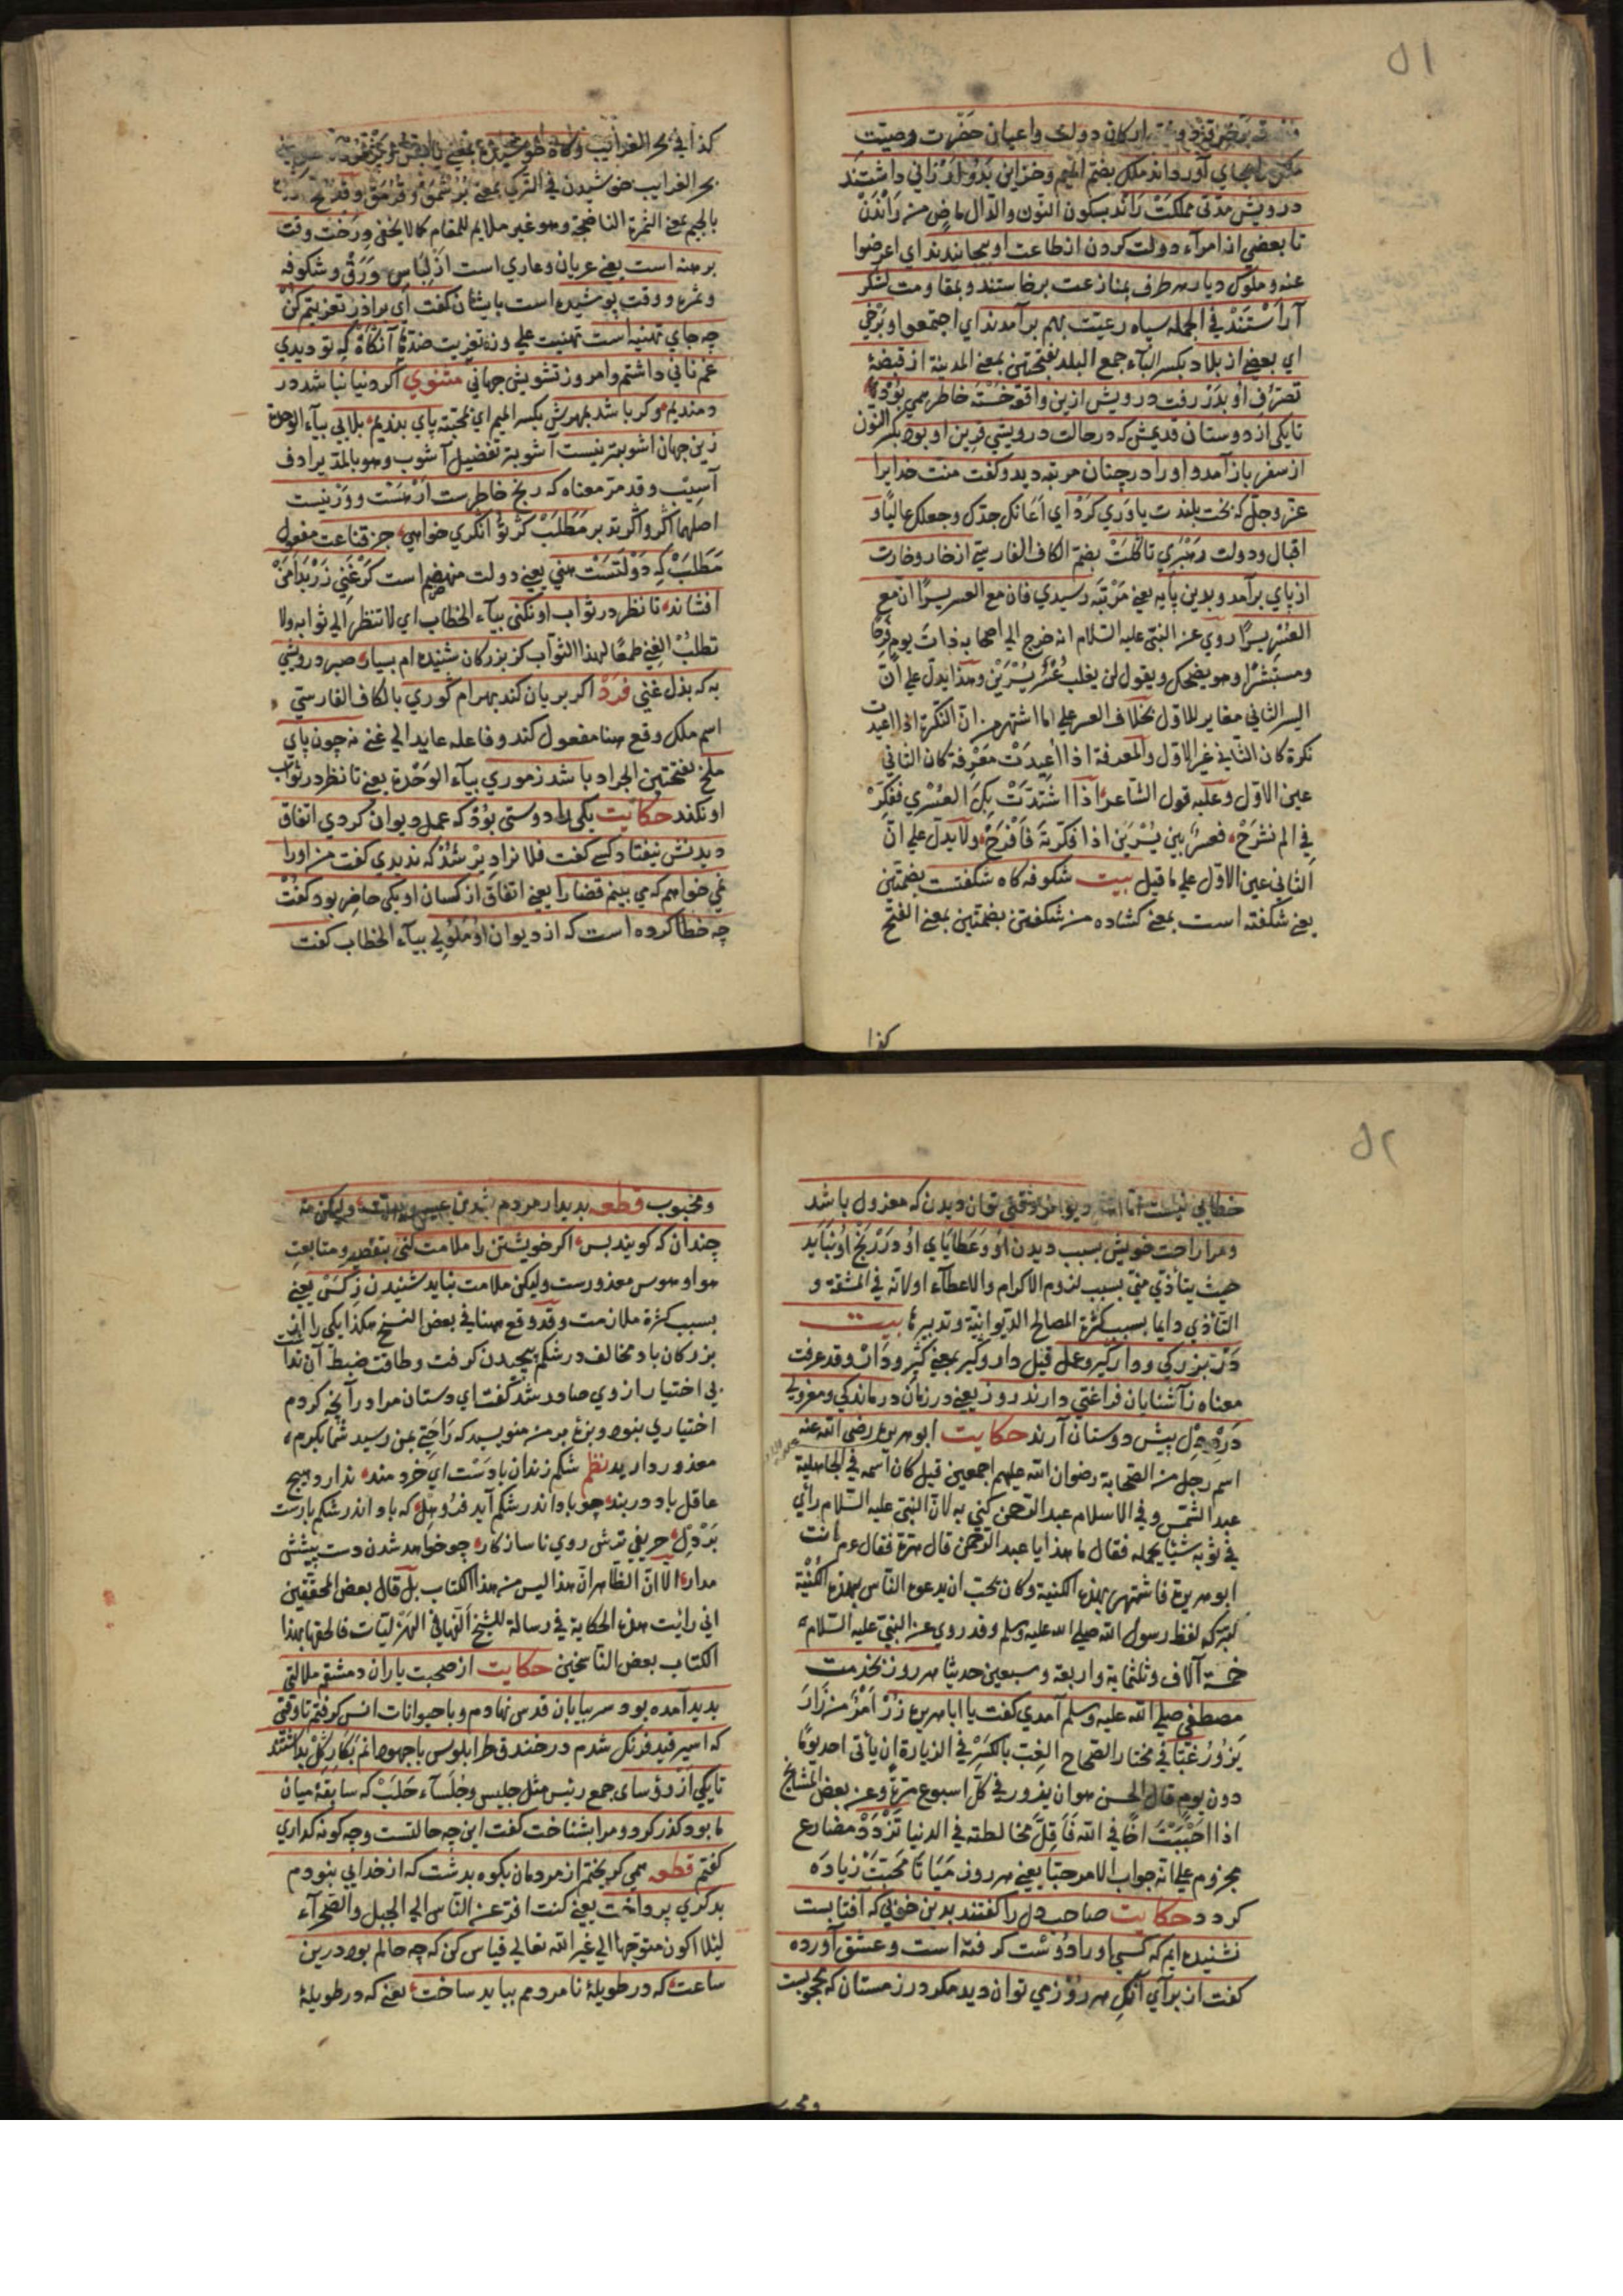 ۵۱
اركان دولت واعيان حضرت وصيت
ملك بجاي آوردند ملك بضم الميم وخزاين بدو ارزاني داشتند
درويش مدتى مملكت راند بسكون النون والدال ماض من راندن
تا بعضي از امرآء دولت كردن از طاعت او بپيچانيدند اي اعرضوا
عنه وملوك ديار هر طرف بمنازعت برخاستند وبمقاومت لشكر
آراستند في الجمله سپاه رعيت بهم برآمدند اي اجتمعوا وبرخي
اي بعضي از بلاد بكسر الباء جمع البلد بفتحتين بمعنى المدينة از قبضة
تصرف او بدر رفت درويش ازين واقعه خسته خاطر همي بود
تا يكى از دوستان قديمش كه در حالت درويشي قرين او بود بكسر النون
از سفر باز آمد واو را در چنان مرتبه ديد وكفت منت خدايرا
عز وجل كه بخت بلندت ياوري كرد اي اعانك جدك وجعلك عاليا و
اقبال ودولت رهبري تا كلت بضم الكاف الفارسي از خار وخارت
از پاي برآمد وبدين پايه يعني مرتبه رسيدي فان مع العسر يسرا ان مع
العسر يسرا روي عن النبي عليه السلام انه خرج الى اصحابه ذات يوم فرحا
ومستبشرا وهو يضحك ويقول لن يغلب عسر يسرين وهذا يدل على ان
اليسر الثاني مغاير للاول بخلاف العسر على ما اشتهر من ان النكرة اذا اعيدت
نكرة كان الثاني غير الاول والمعرفة اذا اعيدت معرفة كان الثاني
عين الاول وعليه قول الشاعر اذا اشتدت بك العسري ففكر
في الم نشرح فعسر بين يسرين اذا فكرته فافرح ولا يدل على ان
الثاني عين الاول على ما قيل بيت شكوفه كاه شكفتست بضمتين
يعني شكفته است بمعنى كشاده من شكفتن بضمتين بمعنى الفتح
كذا
كذا في بحر الغرايب وكاه
بحر الغرايب خوشيدن في التركى بمعنى
بالجيم بمعنى الثمرة الناضجة وهو غير ملايم للمقام كما لا يخفى درخت وقت
برهنه است يعني عريان وعاري است از لباس ورق وشكوفه
وثمره ووقت پوشيده است باي شان كفت اي برادر تعزيتم كن
چه جاي تهنيه است تهنيت على وزن تعزيت ضدها آنكاه كه تو ديدي
غم ناني داشتم وامروز تشويش جهاني مثنوي اكر دنيا نباشد در
دمنديم وكر باشد بمهرش بكسر الميم اي بمحبته پاي بنديم بلايي بياء الوحدة
زين جهان آشوبتر نيست آشوبتر تفضيل آشوب وهو بالمد يرادف
آسيب وقد مر معناه كه رنج خاطرست ار هست وور نيست
اصلهما اكر واكر نه بر مطلب كر توانكري خواهي جز قناعت مفعول
مطلب كه دولتست هني يعني دولت منهضم است كر غني زر بدامن
افشاند تا نظر در ثواب او نكني بياء الخطاب اي لا تنظر الى ثوابه ولا
تطلب الغني طمعا لهذا الثواب كز بزركان شنيده ام بسيار صبر درويش
به كه بذل غني فرد اكر بريان كند بهرام كوري بالكاف الفارسي
اسم ملك وقع هنا مفعول كند وفاعله عايد الى غني نه چون پاي
ملخ بفتحتين الجراد باشد ز موري بياء الوحدة يعني تا نظر در ثواب
او نكند حكايت يكي را دوستي بود كه عمل ديوان كردي اتفاق
ديدنش نيفتاد كسي كفت فلانرا دير شد كه نديدي كفت من اورا
نمي خواهم كه مي بينم قضا را يعني اتفاق از كسان او يكى حاضر بود كفت
چه خطا كرده است كه از ديدن او ملولي بياء الخطاب كفت
۵۲
خطايي نيست اما ديوانرا وقتي توان ديدن كه معزول باشد
ومرا راحت خويش بسبب ديدن او وعطاياي او در رنج او نبايد
حيث يتأذي مني بسبب لزوم الاكرام والاعطآء او لانه في المشقة و
التأذي دايما بسبب كثرة المصالح الديوانية وتدبيرها بيت
در بزركي ودار كير وعمل قيل دار وكير بمعنى كير ودار وقد عرفت
معناه ز آشنايان فراغتي دارند روز يعني در زمان درماندكى ومعزولي
درد دل پيش دوستان آرند حكايت ابو هريره رضى الله عنه
اسم رجل من الصحابة رضوان الله عليهم اجمعين قيل كان اسمه في الجاهلية
عبد الشمس وفي الاسلام عبد الرحمن كني به لان النبي عليه السلام رأي
في ثوبه شيئا يحمله فقال ما هذا يا عبد الرحمن قال هرة فقال عم انت
ابو هريرة فاشتهر بهذه الكنية وكان يحب ان يدعوه الناس بهذه الكنية
لبركة لفظ رسول الله صلى الله عليه وسلم وقد روي عن النبي عليه السلام
خمسة آلاف وثلثماية واربعة وسبعين حديثا هر روز بخدمت
مصطفى صلى الله عليه وسلم آمدي كفت يا ابا هريره زر امر من زار
يزور غبا في مختار الصحاح الغب بالكسر في الزيارة ان يأتي احد يوما
دون يوم قال الحسن هو ان يزور في كل اسبوع مرة وعن بعض المشايخ
اذا احببت اخا في الله فاقل مخالطته في الدنيا تزدد مضارع
مجزوم على انه جواب الامر حبا يعني هر روز ميا تا محبت زياده
كردد حكايت صاحب دل را كفتند بدين خوبي كه آفتابست
نشنيده ايم كه كسي اورا دوست كرفته است وعشق آورده
كفت از براي آنكه هر روز مي توان ديد مكر در زمستان كه محجوبست
ومحبوب
ومحبوب قطعه بديدار مردم شدن عيب نيست وليكن نه
چندان كه كويند بس اكر خويشتن را ملامت كني بتقصير ومتابعت
هوا وهوس معذورست وليكن ملامت نبايد شنيدن ز كس يعني
بسبب كثرة ملازمت وقد وقع هنا في بعض النسخ هكذا يكى را از
بزركان باد مخالف در شكم پيچيدن كرفت وطاقت ضبط آن نداشت
بي اختيار از وي صادر شد كفت اي دستان مرا در آنچه كردم
اختياري نبود وبزه بر من ننويسيد كه راحتي بمن رسيد شما بكرم
معذور داريد نظم شكم زندان بادست اي خردمند ندارد هيچ
عاقل باد در بند چو باد اندر شكم آيد فرو هل كه باد اندر شكم بارست
بر دل حريف ترش روي ناسازكار چو خواهد شدن دست پيشش
مدار الا ان الظاهر ان هذا ليس من هذا الكتاب بل قال بعض المحققين
اني رأيت هذه الحكاية في رسالة للشيخ الفها في الهزليات فالحقها بهذا
الكتاب بعض الناسخين حكايت از صحبت ياران دمشقم ملالتي
بديد آمده بود سر بيابان قدس نهادم وبا حيوانات انس كرفتم تا وقتي
كه اسير قيد فرنك شدم در خندق طرابلوس با جهودانم بكار كل بداشتند
تا يكي از رؤساي جمع رئيس مثل جليس وجلسآء حلب كه سابقة ميان
ما بود كذر كرد ومرا بشناخت كفت اين چه حالتست وچه كونه كذاري
كفتم قطعه همي كريختم از مردمان بكوه بدشت كه از خدايي نبودم
بدكري پرداخت يعني كنت افر عن الناس الى الجبل والصحرآء
لئلا اكون متوجها الى غير الله تعالى قياس كن كه چه حالم بود درين
ساعت كه در طويلة نامردمم ببايد ساخت يعني كه در طويلة